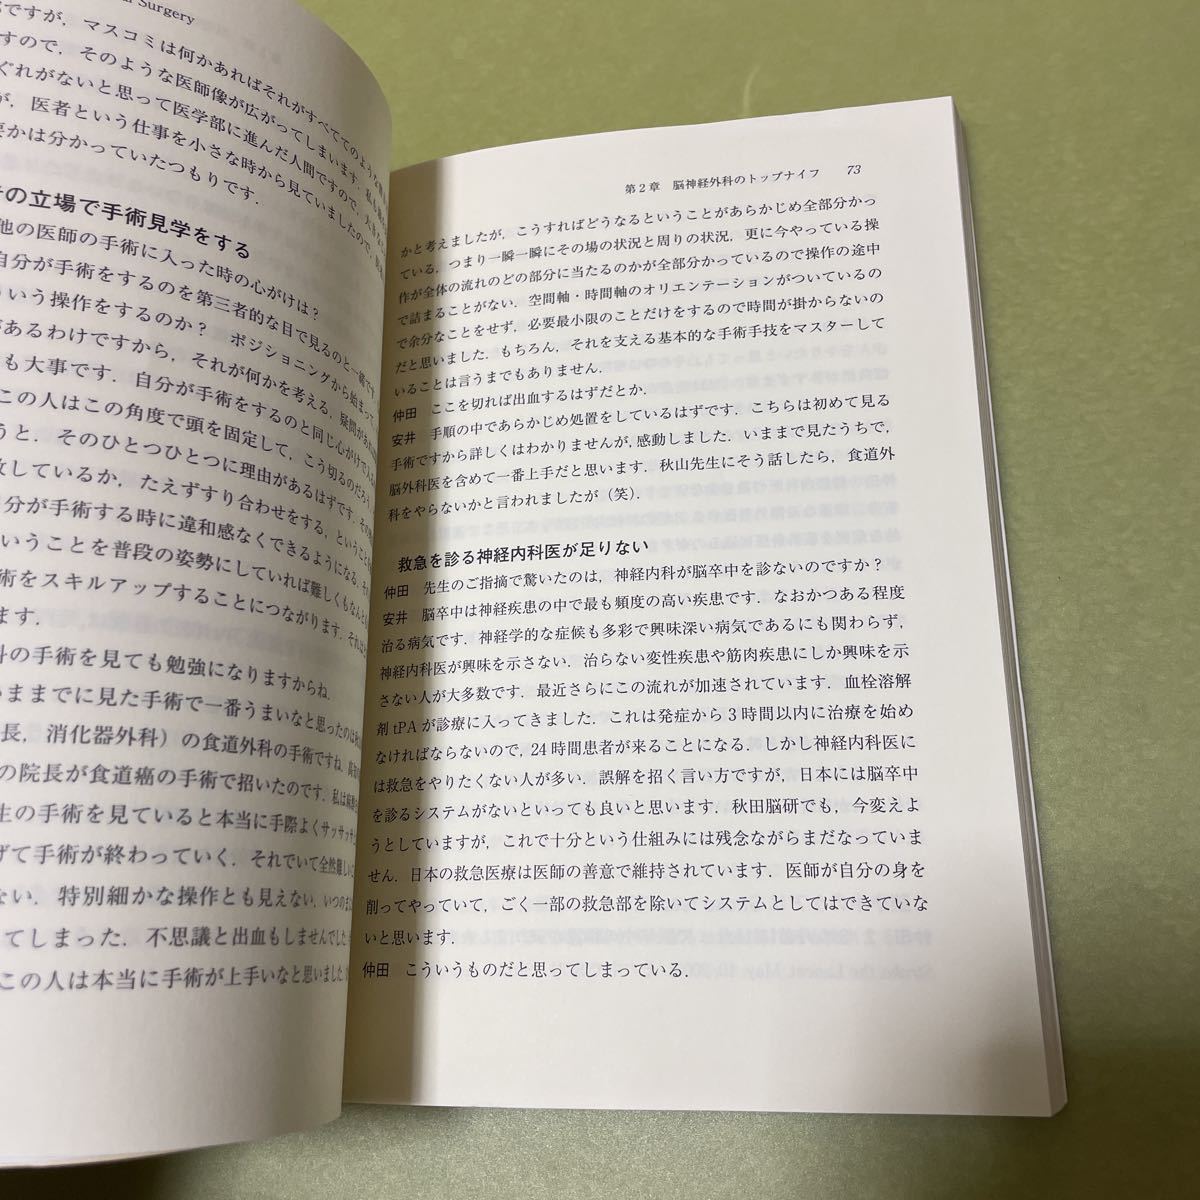 Surgery
ですが，マスコミは何かあればそれがすべてのような
すので，そのような医師像が広がってしまいます．私も
ぐれがないと思って医学部に進んだ人間ですので，大
が，医者という仕事を小さな時から見ていましたので，
要かは分かっていたつもりです．
の立場で手術見学をする
他の医師の手術に入った時の心がけは？
自分が手術をするのを第三者的な目で見るのと一緒です
いう操作をするのか？　ポジショニングから始まって
があるわけですから，それが何かを考える，疑問があ
も大事です．自分が手術をするのと同じ心がけで入
この人はこの角度で頭を固定して，こう切るのだろう
うと．そのひとつひとつに理由があるはずです．
しているか，たえずすり合わせをする，ということ
分が手術する時に違和感なくできるようになる．
いうことを普段の姿勢にしていれば難しくもなんとも
術をスキルアップすることにつながります．それは
ます．
科の手術を見ても勉強になりますからね．
いままでに見た手術で一番うまいなと思ったのは
長，消化器外科）の食道外科の手術ですね．
の院長が食道癌の手術で招いたのです．私は
生の手術を見ていると本当に手際よくサッサッサッ
げて手術が終わっていく．それでいて全然難しい
ない．特別細かな操作とも見えない．いつのま
てしまった．不思議と出血もしませんでした
この人は本当に手術が上手いなと思いました
第２章　脳神経外科のトップナイフ　73
かと考えましたが，こうすればどうなるということがあらかじめ全部分かっ
ている，つまり一瞬一瞬にその場の状況と周りの状況，更に今やっている操
作が全体の流れのどの部分に当たるのかが全部分かっているので操作の途中
で詰まることがない．空間軸・時間軸のオリエンテーションがついているの
で余分なことをせず，必要最小限のことだけをするので時間が掛からないの
だと思いました．もちろん，それを支える基本的な手術手技をマスターして
いることは言うまでもありません．
仲田　ここを切れば出血するはずだとか．
安井　手順の中であらかじめ処置をしているはずです．こちらは初めて見る
手術ですから詳しくはわかりませんが，感動しました．いままで見たうちで，
脳外科医を含めて一番上手だと思います．秋山先生にそう話したら，食道外
科をやらないかと言われましたが（笑）．
救急を診る神経内科医が足りない
仲田　先生のご指摘で驚いたのは，神経内科が脳卒中を診ないのですか？
安井　脳卒中は神経疾患の中で最も頻度の高い疾患です．なおかつある程度
治る病気です．神経学的な症候も多彩で興味深い病気であるにも関わらず，
神経内科医が興味を示さない．治らない変性疾患や筋肉疾患にしか興味を示
さない人が大多数です．最近さらにこの流れが加速されています．血栓溶解
剤tPAが診療に入ってきました．これは発症から３時間以内に治療を始め
なければならないので，24時間患者が来ることになる．しかし神経内科医に
は救急をやりたくない人が多い．誤解を招く言い方ですが，日本には脳卒中
を診るシステムがないといっても良いと思います．秋田脳研でも，今変えよ
うとしていますが，これで十分という仕組みには残念ながらまだなっていま
せん．日本の救急医療は医師の善意で維持されています．医師が自分の身を
削ってやっていて，ごく一部の救急部を除いてシステムとしてはできていな
いと思います．
仲田　こういうものだと思ってしまっている．